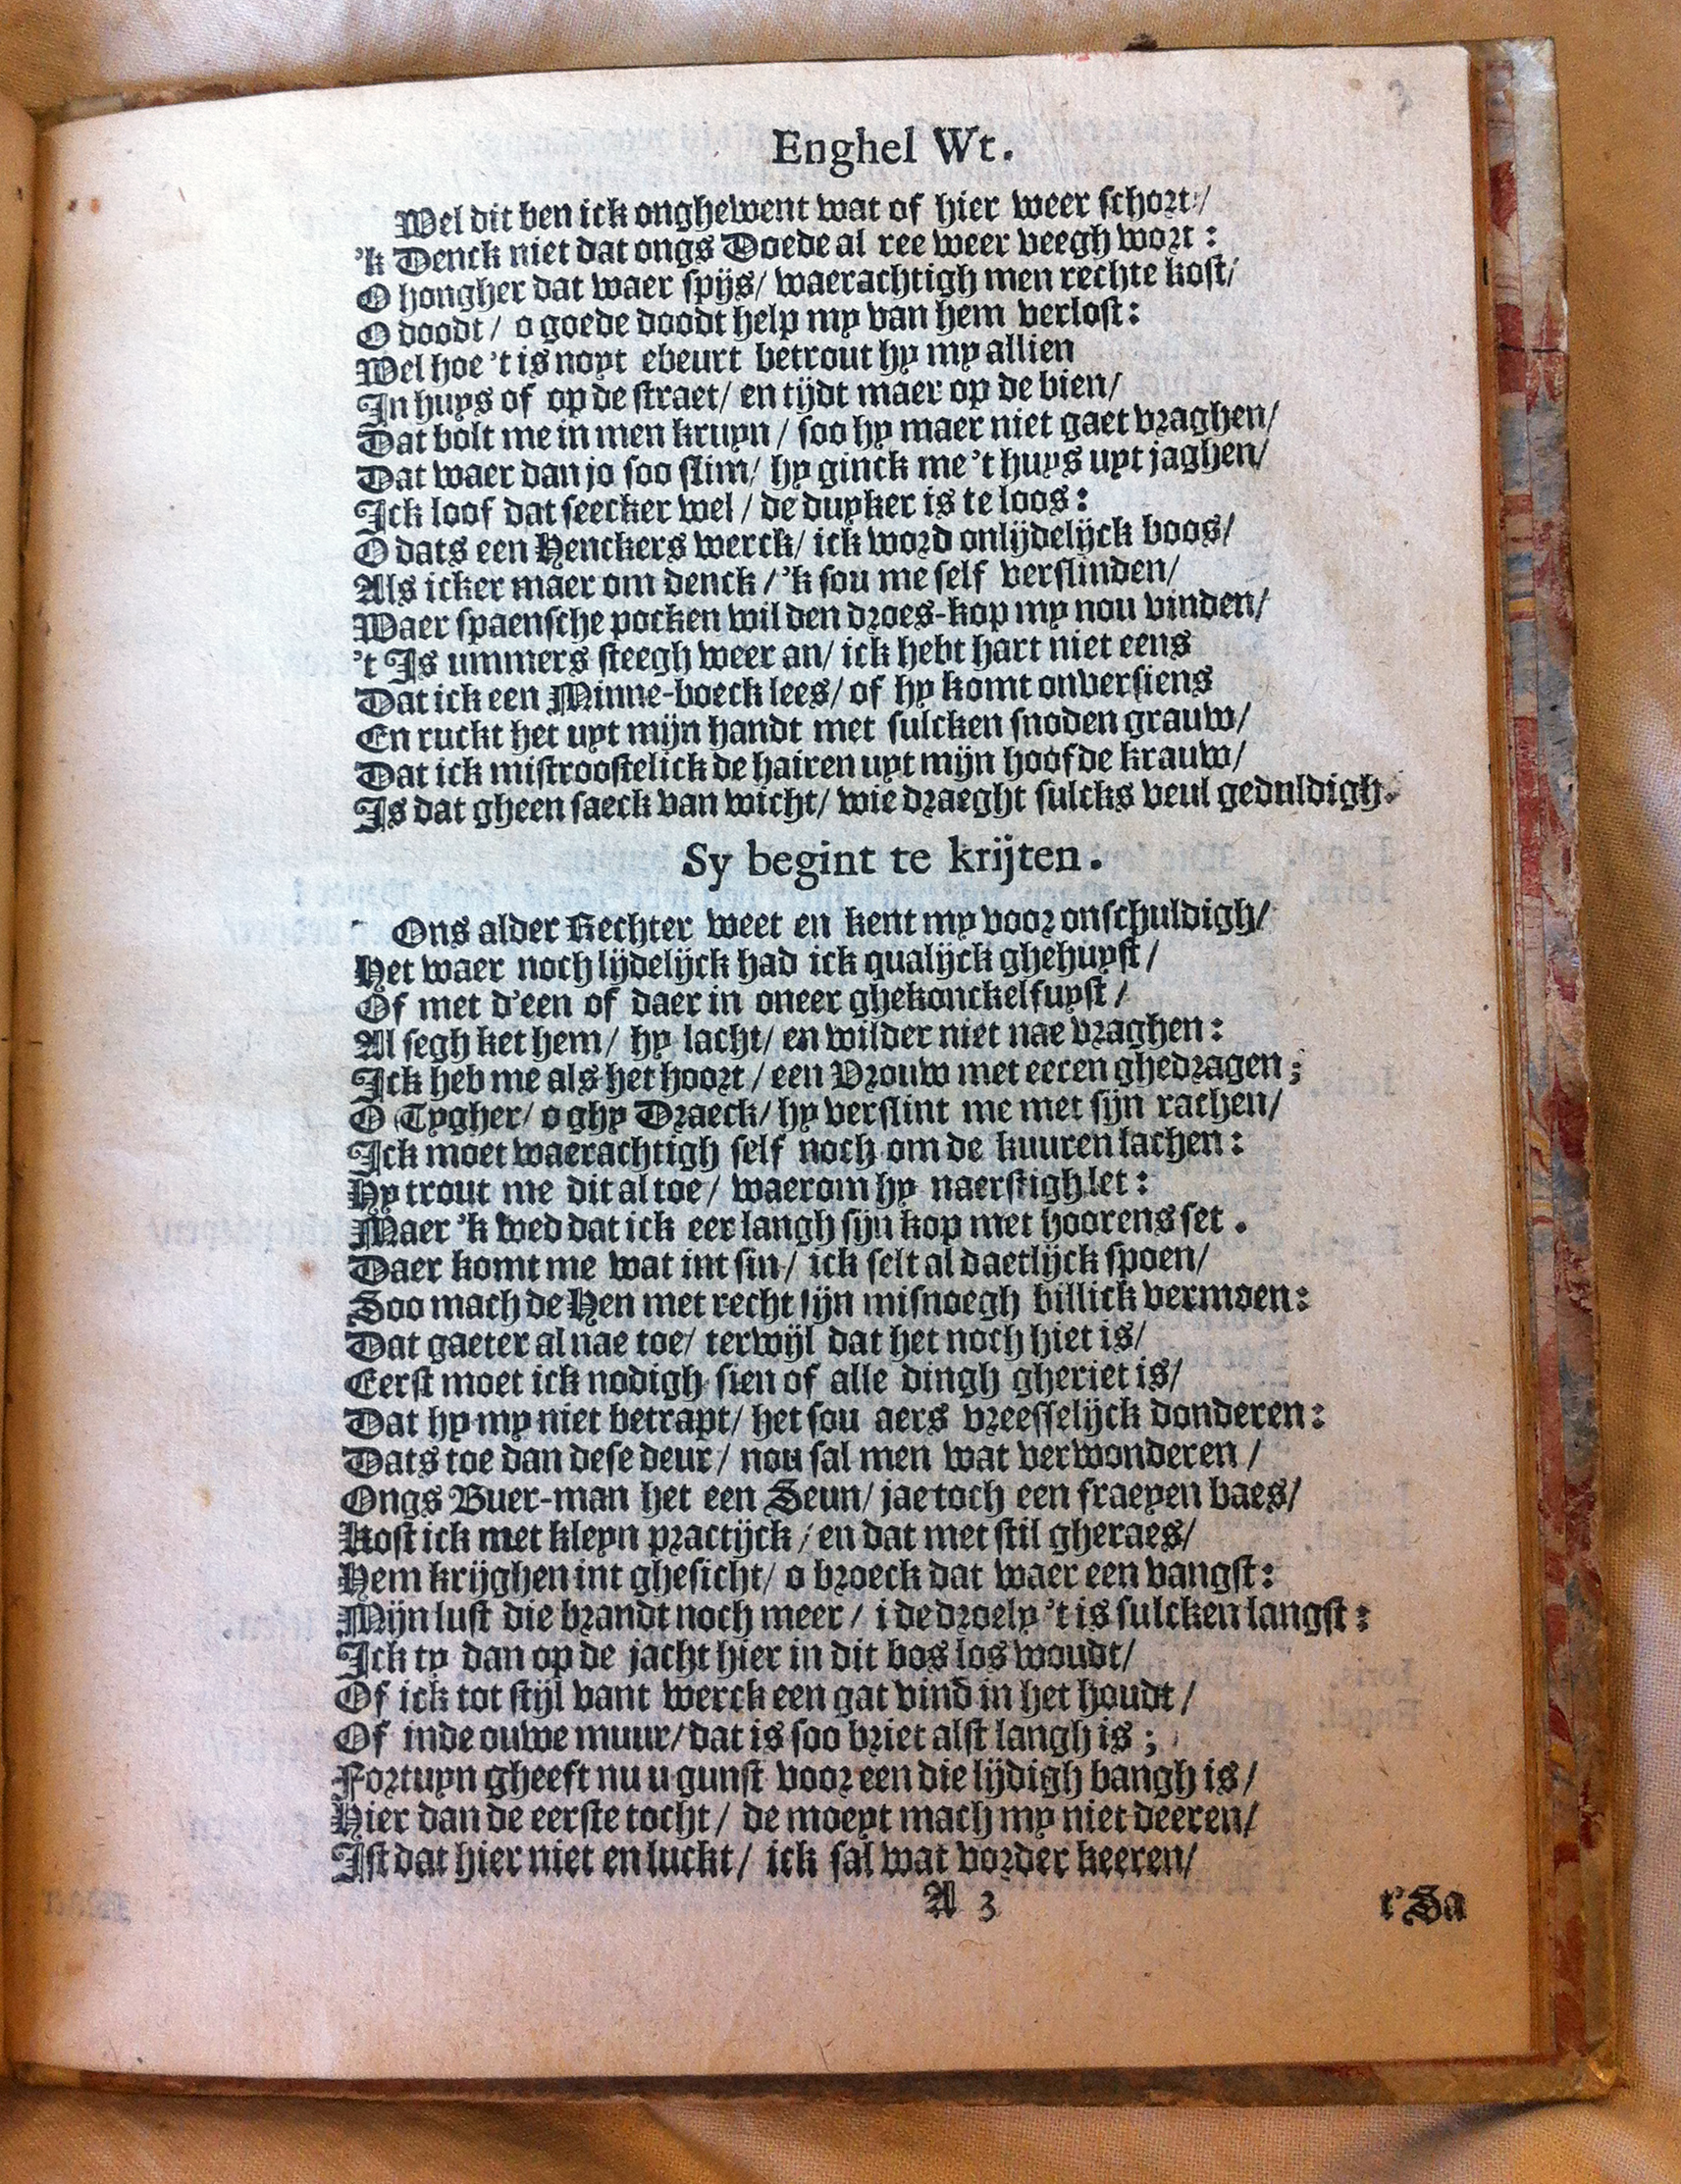 3
Enghel Wt.
Wel dit ben ick onghewent wat of hier weer schort/
'k Denck niet dat ongs Doede al ree weer veegh wort :
O hongher dat waer spijs/ waerachtigh men rechte kost/
O doodt / o goede doodt help my van hem verlost:
Wel hoe 't is noyt ebeurt betrout hy my allien
In huys of op de straet/ en tijdt maer op de bien/
Dat bolt me in men kruyn / soo hy maer niet gaet vraghen/
Dat waer dan jo soo slim/ hy ginck me 't huys uyt jaghen/
Ick loof dat seecker wel / de duyker is te loos:
O dats een Henckers werck/ ick word onlijdelijck boos/
Als icker maer om denck /'k sou me self verslinden/
Waer spaensche pocken wil den droes-kop my nou vinden/
't Is ummers steegh weer an/ ick hebt hart niet eens
Dat ick een Minne-boeck lees/ of hy komt onversiens
En ruckt het uyt mijn handt met sulcken snoden grauw/
Dat ick mistroostelick de hairen uyt mijn hoofde krauw/
Is dat gheen saeck van wicht/ wie draeght sulcks veul geduldigh.
Sy begint te krijten.
Ons alder Rechter weet en kent my voor onschuldigh/
Het waer noch lijdelijck had ick qualijck ghehuyst/
Of met d'een of daer in oneer ghekonckelfuyst /
Al segh ket hem/ hy lacht/ en wilder niet nae vraghen:
Ick heb me als het hoort / een Vrouw met eeren ghedragen;
O Tygher/ o ghy Draeck/ hy verslint me met sijn rachen/
Ick moet waerachtigh self noch om de kuuren lachen:
Hy trout me dit al toe/ waerom hy naerstigh let:
Maer 'k wed dat ick eer langh sijn kop met hoorens set.
Daer komt me wat int sin/ ick selt al daetlijck spoen/
Soo mach de Hen met recht sijn misnoegh billick vermoen:
Dat gaeter al nae toe/ terwijl dat het noch hiet is/
Eerst moet ick nodigh sien of alle dingh gheriet is/
Dat hy my niet betrapt/ het sou aers vreesselijck donderen:
Dats toe dan dese deur/ nou sal men wat verwonderen /
Ongs Buer-man het een Seun/ jae toch een fraeyen baes/
Kost ick met kleyn practijck / en dat met stil gheraes/
Hem krijghen int ghesicht/ o broeck dat waer een vangst:
Mijn lust die brandt noch meer / i de droely 't is sulcken langst:
Ick ty dan op de jacht hier in dit bos los woudt/
Of ick tot stijl vant werck een gat vind in het houdt /
Of inde ouwe muur/ dat is soo briet alst langh is;
Fortuyn gheeft nu u gunst voor een die lijdigh bangh is/
Hier dan de eerste tocht/ de moeyt mach my niet deeren/
Ist dat hier niet en luckt/ ick sal wat vorder keeren/
A 3
t'Sa